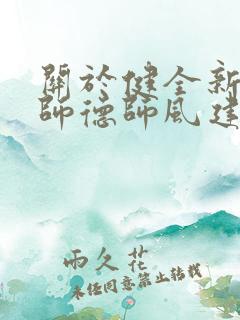 關於健全新
師德師風建
雨久花
未經同意禁止轉載